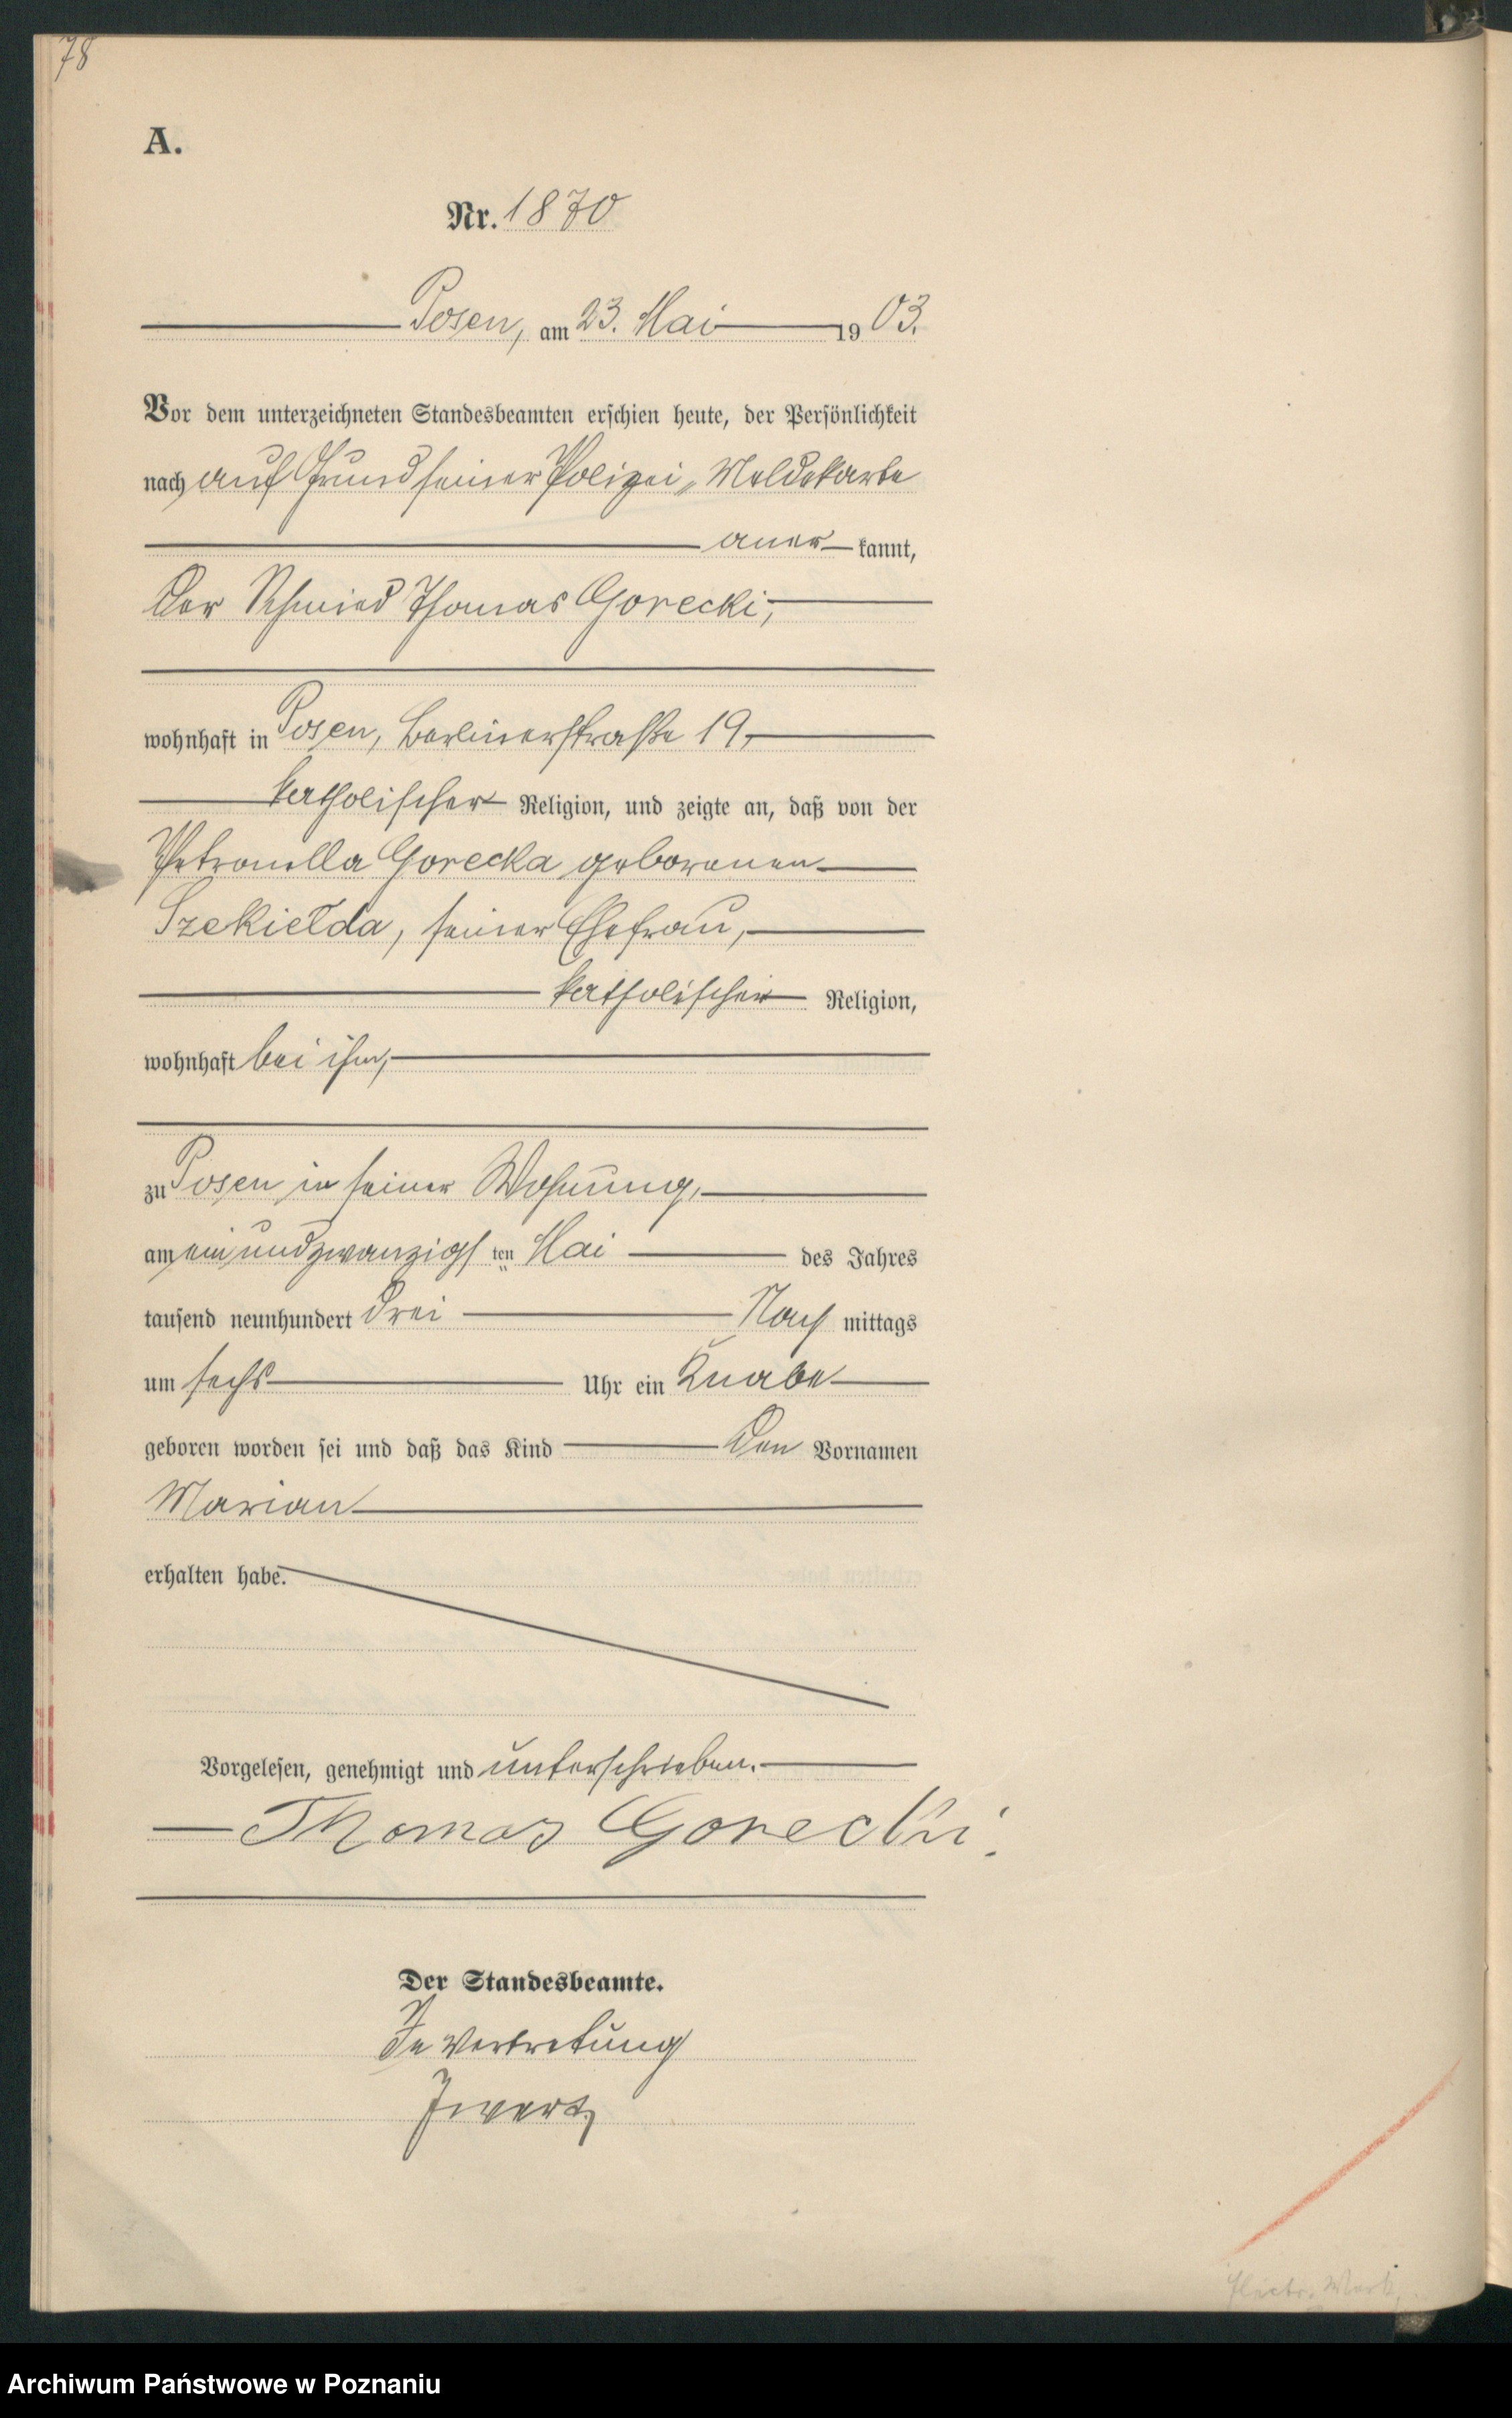 78
A.
Nr. 1870
Posen, am 23. Mai 1903.
Vor dem unterzeichneten Standesbeamten erschien heute, der Persönlichkeit
nach auf Grund seiner Polizei-Meldekarte
anerkannt,
der Schmied Thomas Gorecki,
wohnhaft in Posen, Berlinerstraße 19,
katholischer Religion, und zeigte an, daß von der
Petronella Gorecka geborenen
Szekiełda, seiner Ehefrau,
katholischer Religion,
wohnhaft bei ihm,
zu Posen in seiner Wohnung,
am einundzwanzigsten Mai des Jahres
tausend neunhundert drei Nachmittags
um sechs Uhr ein Knabe
geboren worden sei und daß das Kind den Vornamen
Marian
erhalten habe.
Vorgelesen, genehmigt und unterschrieben.
Thomas Gorecki.
Der Standesbeamte.
In Vertretung
Archiwum Państwowe w Poznaniu